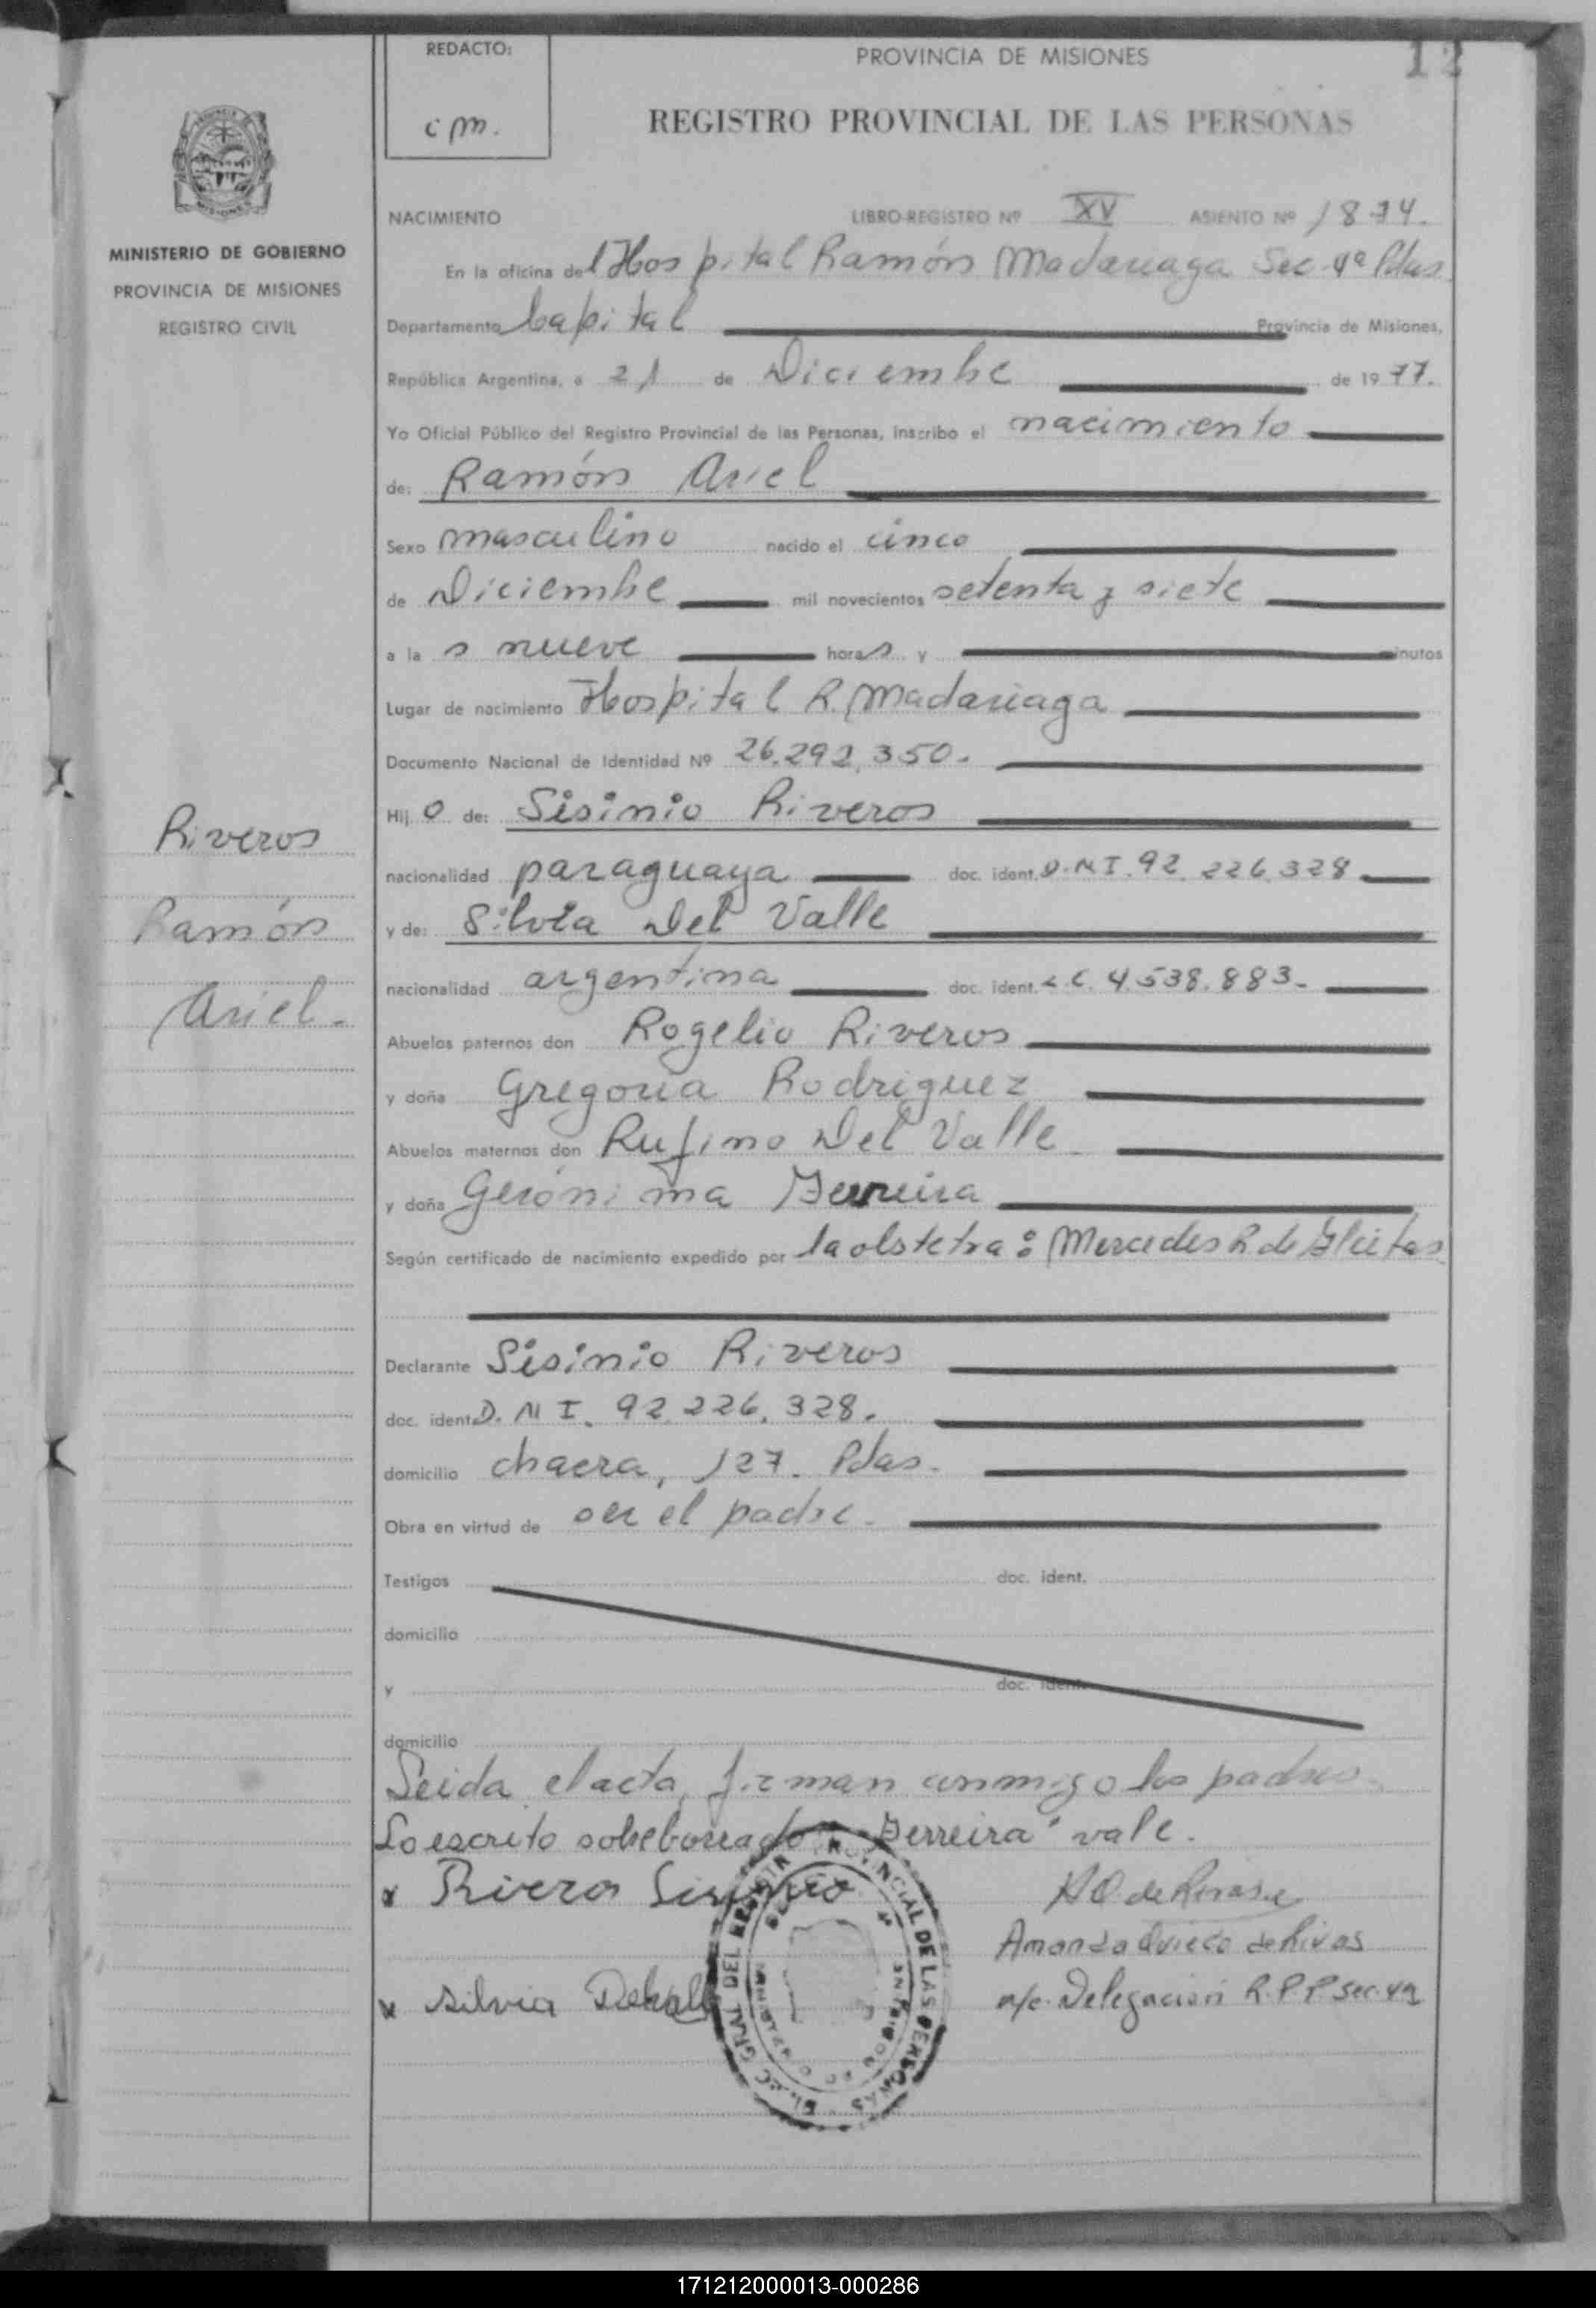 REDACTO:
c m.
PROVINCIA DE MISIONES
12
REGISTRO PROVINCIAL DE LAS PERSONAS
MINISTERIO DE GOBIERNO
PROVINCIA DE MISIONES
REGISTRO CIVIL
Riveros
Ramón
Ariel.
NACIMIENTO LIBRO-REGISTRO Nº XV ASIENTO Nº 1874.
En la oficina del Hospital Ramón Madariaga Sec. 4ª Pdas
Departamento Capital Provincia de Misiones,
República Argentina, a 21 de Diciembre de 1977.
Yo Oficial Público del Registro Provincial de las Personas, inscribo el nacimiento
de: Ramón Ariel
Sexo masculino nacido el cinco
de Diciembre mil novecientos setenta y siete
a las nueve horas y minutos
Lugar de nacimiento Hospital R. Madariaga
Documento Nacional de Identidad Nº 26.292.350.
Hijo de: Sisinio Riveros
nacionalidad paraguaya doc. ident. D.N.I. 92.226.328
y de: Silvia Del Valle
nacionalidad argentina doc. ident. L.C. 4.538.883.
Abuelos paternos don Rogelio Riveros
y doña Gregoria Rodriguez
Abuelos maternos don Rufino Del Valle
y doña Gerónima Ferreira
Según certificado de nacimiento expedido por la obstetra: Mercedes R. de
Declarante Sisinio Riveros
doc. ident. D.N.I. 92.226.328.
domicilio chacra, 127. Pdas.
Obra en virtud de ser el padre.
Testigos doc. ident.
domicilio
y doc. ident.
domicilio
Leida el acta, firman conmigo los padres.
Lo escrito sobreborrado: "Ferreira" vale.
x Rivero Sisinio
Amanda Oviedo de Rivas
x Silvia Delvalle
a/c. Delegación R.P.P. Sec. 4ª
PROVINCIAL DE LAS PERSONAS
GRAL DEL
171212000013-000286